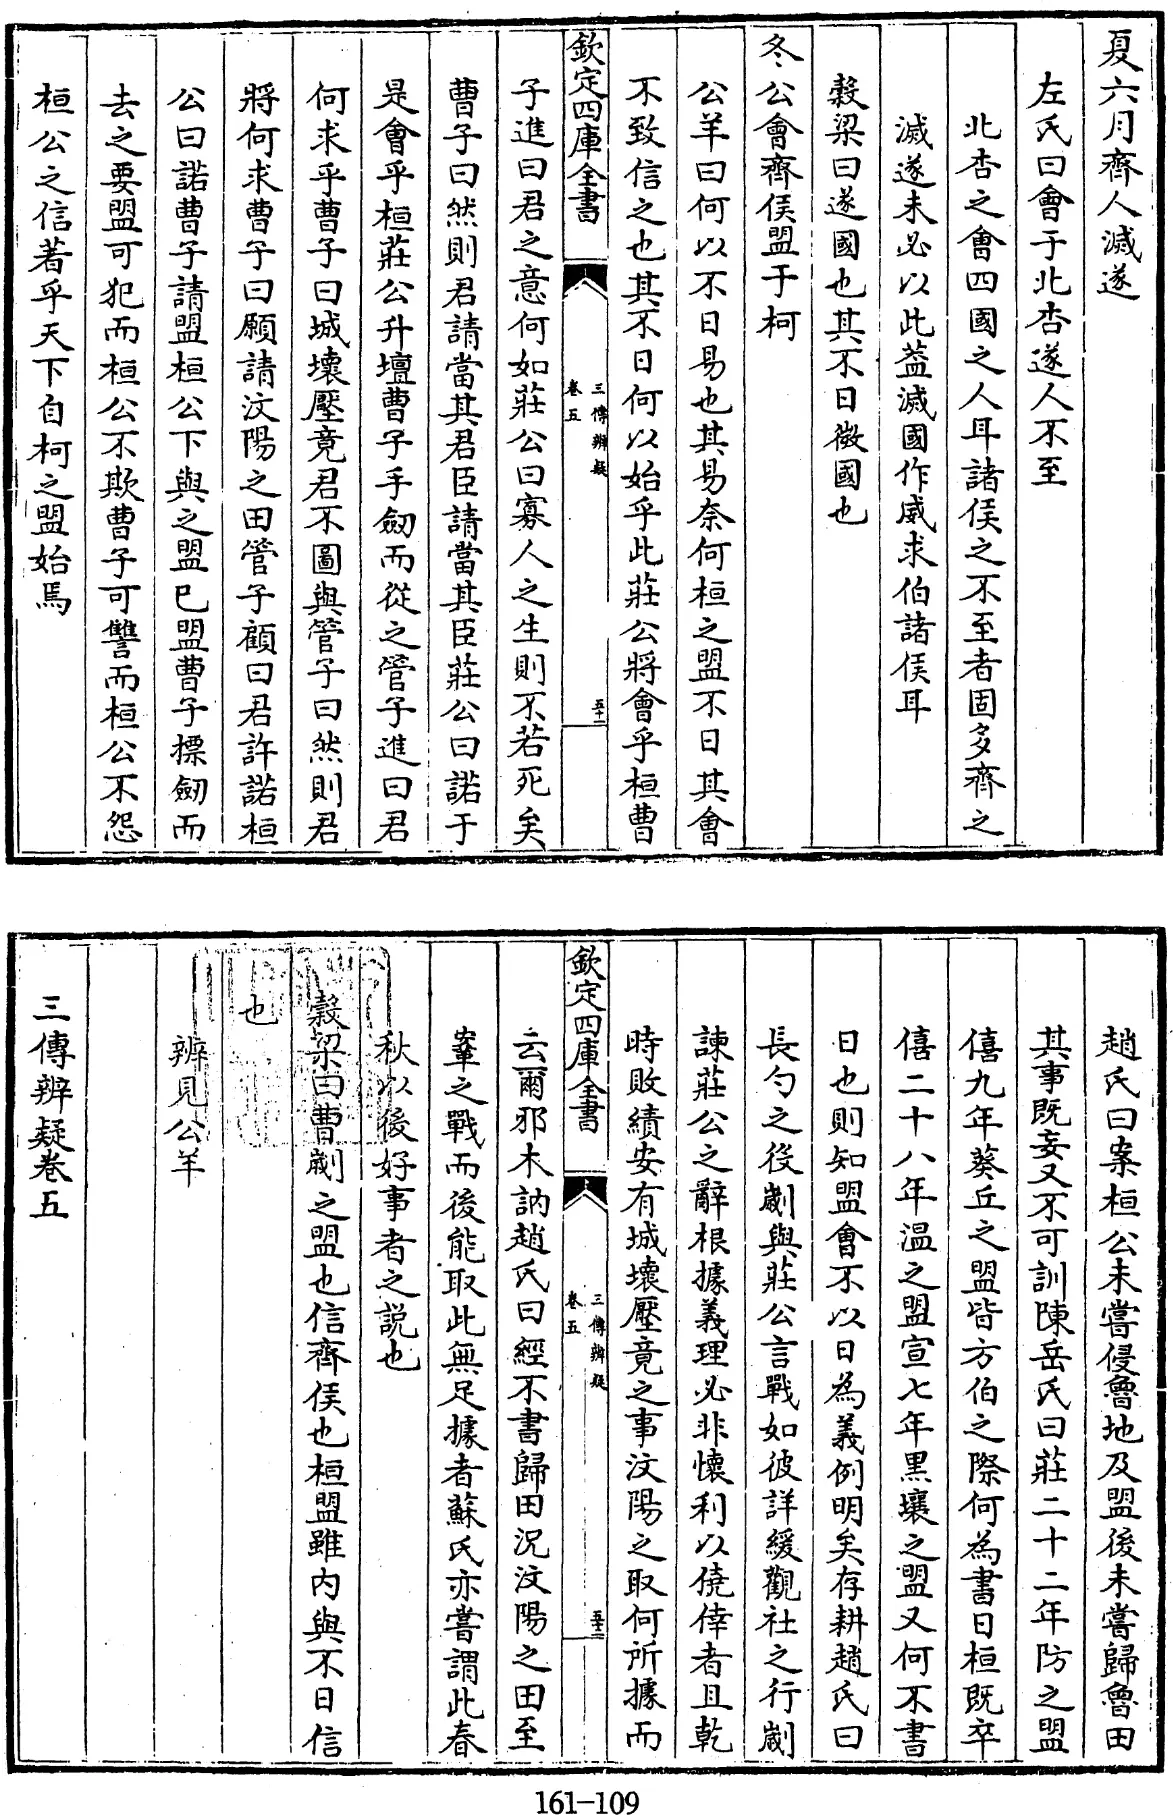 夏六月齊人滅遂
左氏曰會于北杏遂人不至
北杏之會四國之人耳諸侯之不至者固多齊之
滅遂未必以此蓋滅國作威求伯諸侯耳
穀梁曰遂國也其不日微國也
冬公會齊侯盟于柯
公羊曰何以不日易也其易奈何桓之盟不日其會
不致信之也其不日何以始乎此莊公將會乎桓曹
欽定四庫全書
三傳辨疑
卷五
五十一
子進曰君之意何如莊公曰寡人之生則不若死矣
曹子曰然則君請當其君臣請當其臣莊公曰諾于
是會乎桓莊公升壇曹子手劒而從之管子進曰君
何求乎曹子曰城壞壓竟君不圖與管子曰然則君
將何求曹子曰願請汶陽之田管子顧曰君許諾桓
公曰諾曹子請盟桓公下與之盟已盟曹子摽劒而
去之要盟可犯而桓公不欺曹子可讐而桓公不怨
桓公之信著乎天下自柯之盟始焉
趙氏曰案桓公未嘗侵魯地及盟後未嘗歸魯田
其事既妄又不可訓陳岳氏曰莊二十二年防之盟
僖九年葵丘之盟皆方伯之際何為書日桓既卒
僖二十八年温之盟宣七年黑壤之盟又何不書
日也則知盟會不以日為義例明矣存耕趙氏曰
長勺之役劌與莊公言戰如彼詳緩觀社之行劌
諫莊公之辭根據義理必非懷利以僥倖者且乾
時敗績安有城壞壓竟之事汶陽之取何所據而
欽定四庫全書
三傳辨疑
卷五
五十二
云爾邪木訥趙氏曰經不書歸田況汶陽之田至
鞌之戰而後能取此無足據者蘇氏亦嘗謂此春
秋以後好事者之説也
穀梁曰曹劌之盟也信齊侯也桓盟雖内與不日信
也
辨見公羊
三傳辨疑卷五
161-109